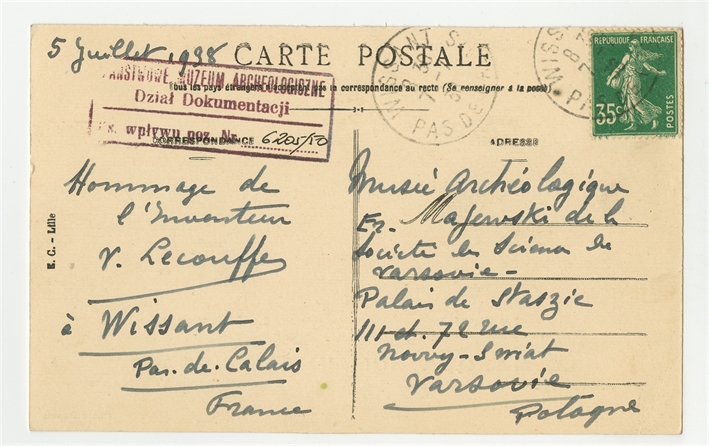 5 Juillet 1938
CARTE POSTALE
Tous les pays étrangers n'acceptent pas la correspondance au recto (Se renseigner à la poste)
PAŃSTWOWE MUZEUM ARCHEOLOGICZNE
Dział Dokumentacji
Ks. wpływu poz. Nr. 6205/50
CORRESPONDANCE
ADRESSE
WISSANT
PAS DE
WISS
RÉPUBLIQUE FRANÇAISE
35c
POSTES
E. C. – Lille
Hommage de
l'Inventeur
V. Lecouffe
à Wissant
Pas-de-Calais
France
Musée Archéologique
Er. Majewski de la
Société des Sciences de
Varsovie –
Palais de Staszic
III et. 72 rue
Nowy-Swiat
Varsovie
Pologne